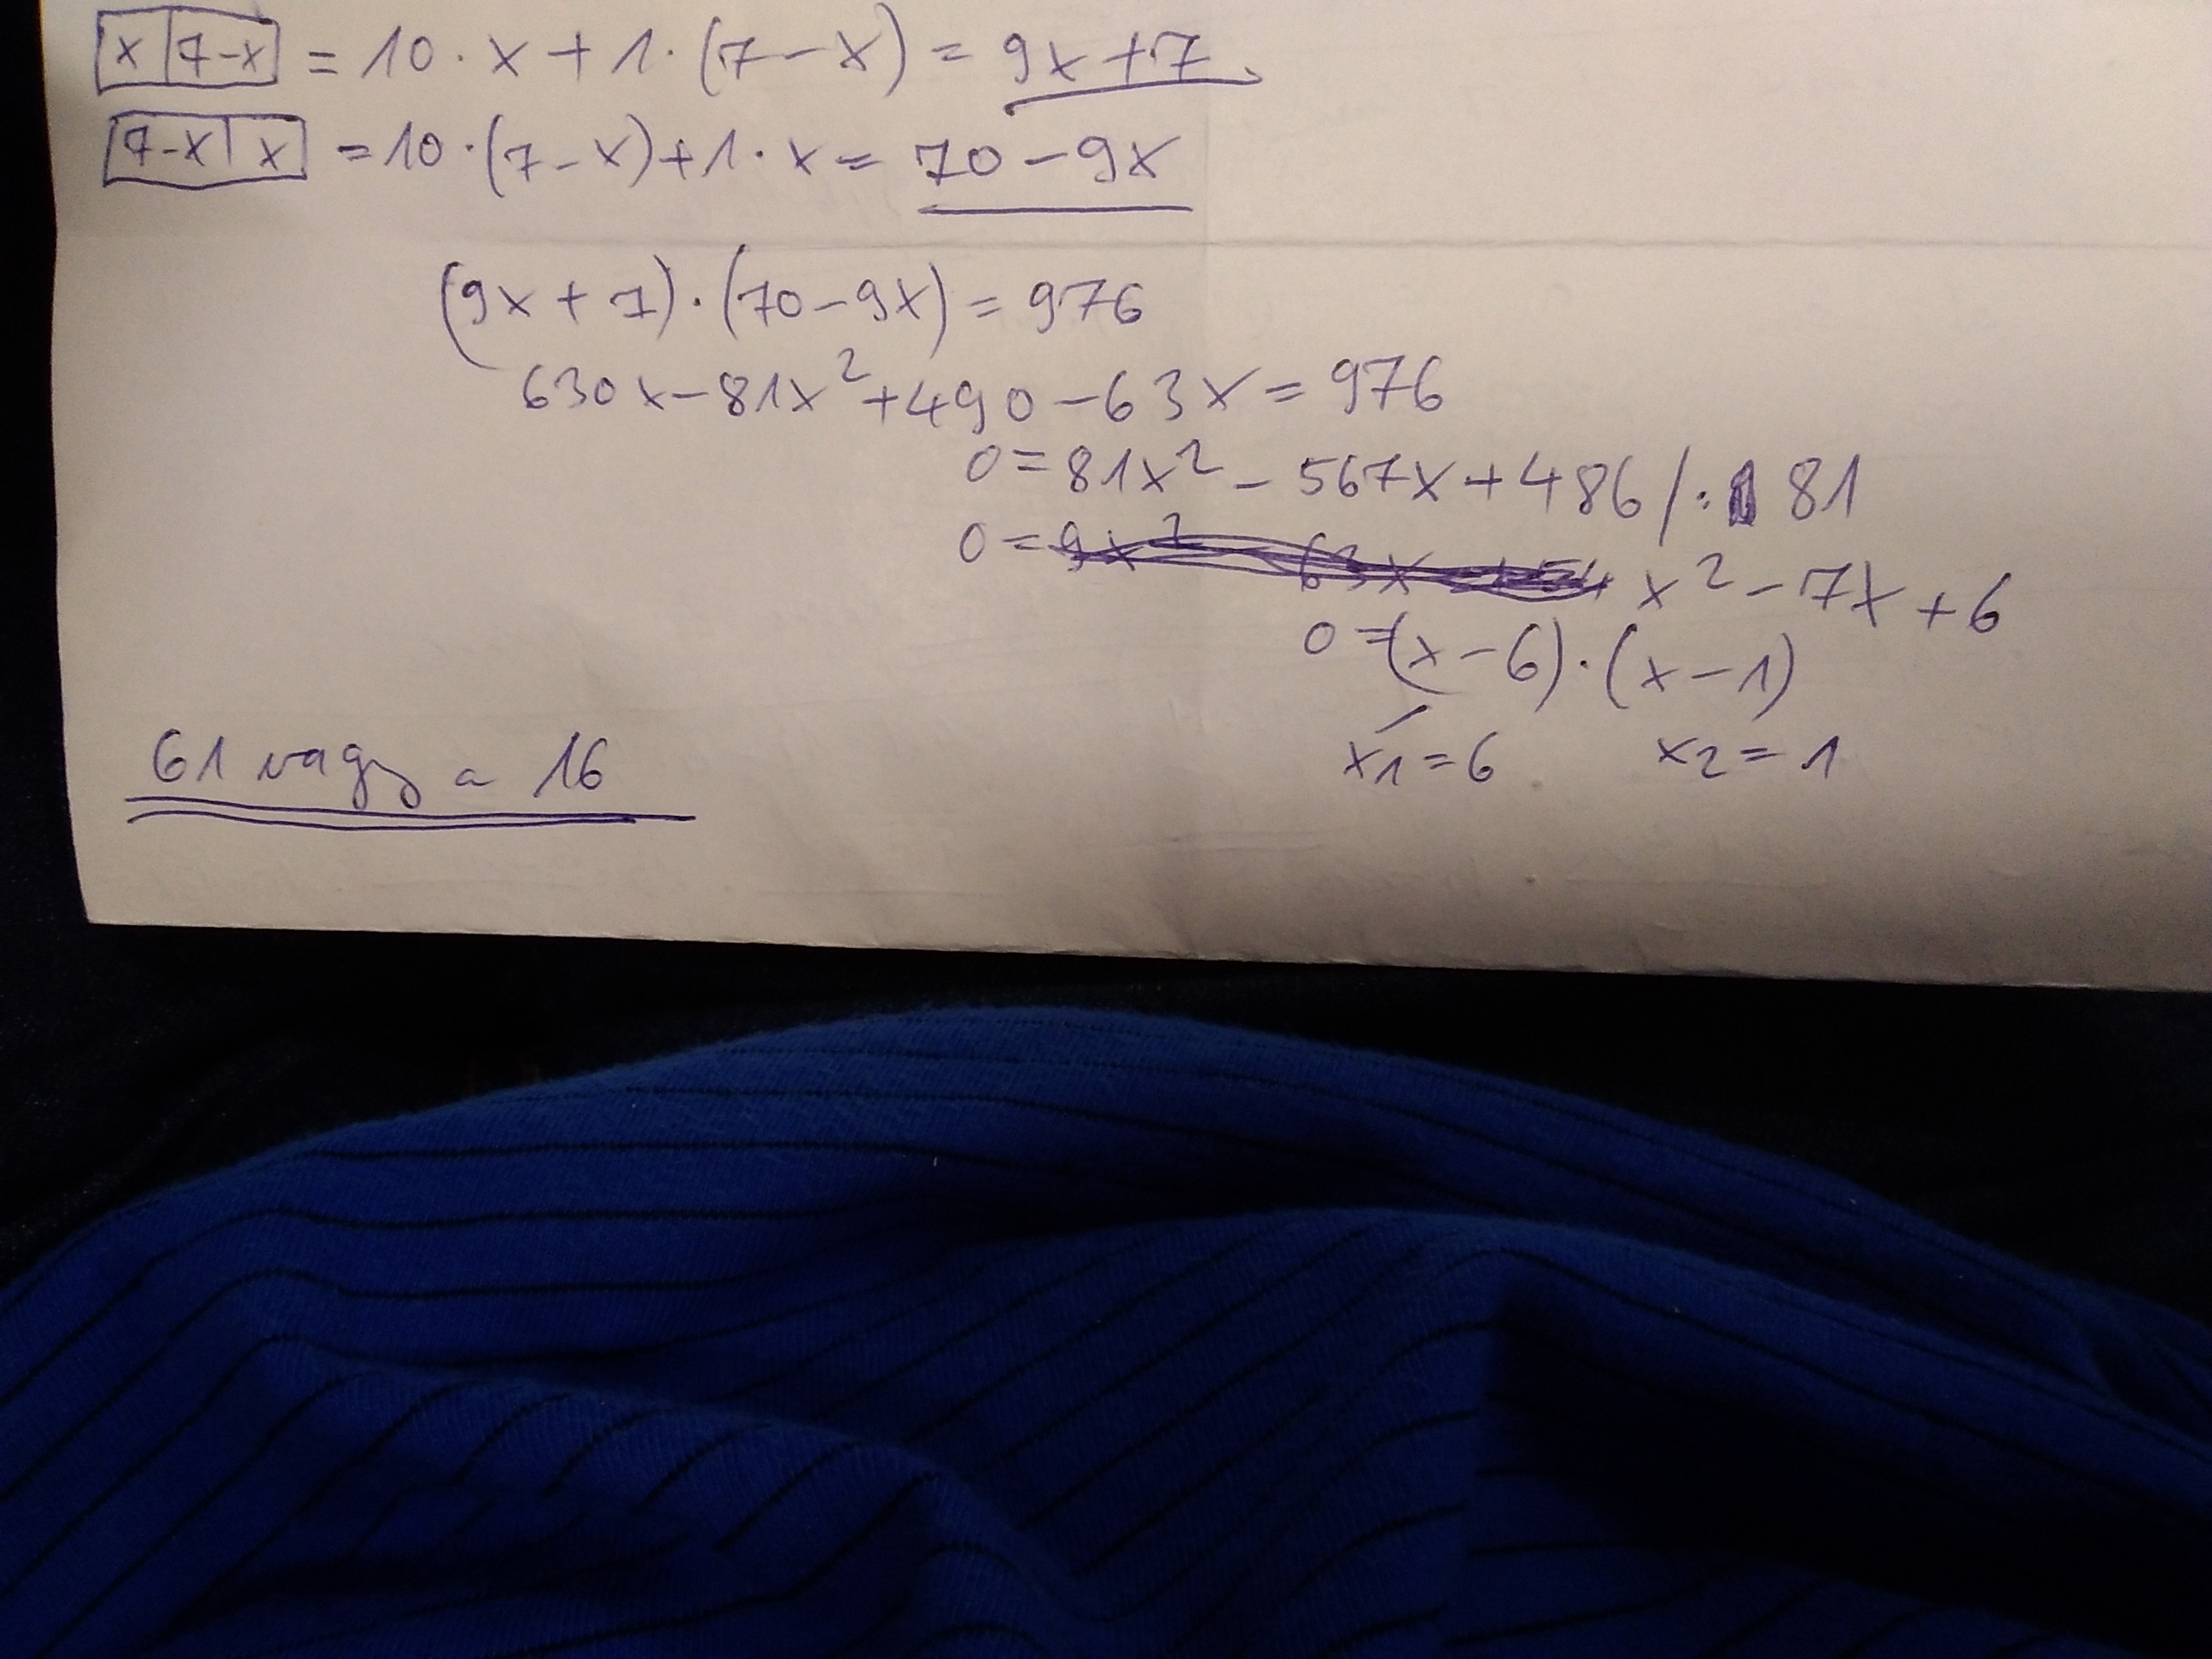 x | 7-x = 10 · x + 1 · (7 - x) = 9x + 7
7-x | x = 10 · (7 - x) + 1 · x = 70 - 9x
(9x + 7) · (70 - 9x) = 976
630x - 81x² + 490 - 63x = 976
0 = 81x² - 567x + 486 / : 81
0 = x² - 7x + 6
0 = (x - 6) · (x - 1)
x₁ = 6 x₂ = 1
61 vagy a 16